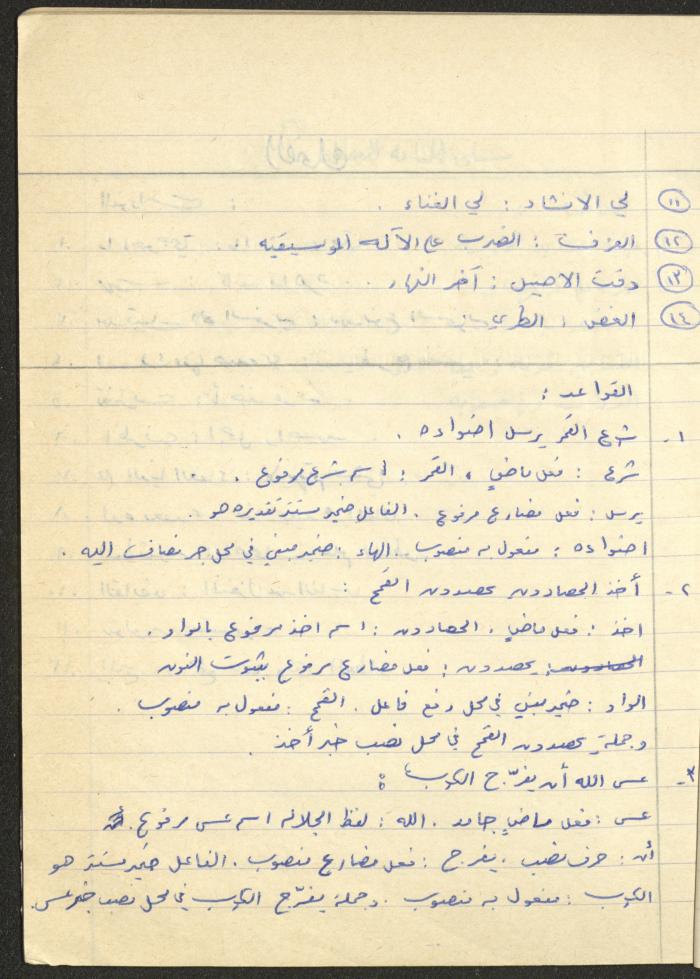 ١١ في الانشاد : في الغناء .
١٢ العزف : الضرب على الآله الموسيقيه
١٣ وقت الاصيل : آخر النهار . .
١٤ الغض : الطري
القواعد :
١- شرع القمر يرسل اضواءه .
شرع : فعل ماضٍ ، القمر : اسم شرع مرفوع .
يرسل : فعل مضارع مرفوع . الفاعل ضمير مستتر تقديره هو
اضواءه : مفعول به منصوب . الهاء : ضمير مبني في محل جر مضاف اليه .
٢- أخذ الحصادون يحصدون القمح :
اخذ : فعل ماضٍ . الحصادون : اسم اخذ مرفوع بالواو .
يحصدون : فعل مضارع مرفوع بثبوت النون
الواو : ضمير مبني في محل رفع فاعل . القمح : مفعول به منصوب .
وجملة يحصدون القمح في محل نصب خبر أخذ .
٣- عسى الله أن يفرّج الكرب :
عسى : فعل ماضٍ جامد . الله : لفظ الجلاله اسم عسى مرفوع .
أن : حرف نصب . يفرج : فعل مضارع منصوب . الفاعل ضمير مستتر هو
الكرب : مفعول به منصوب . وجملة يفرّج الكرب في محل نصب خبر عسى .